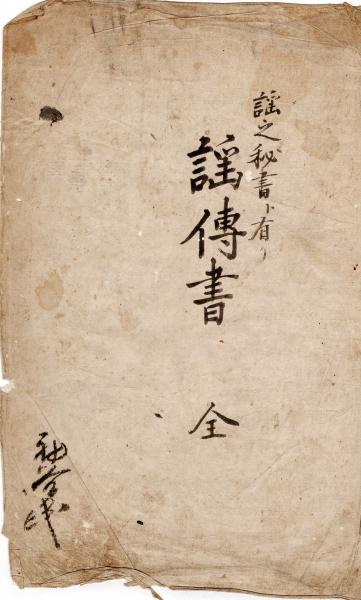 謡之秘書ト有リ
謡傳書 全